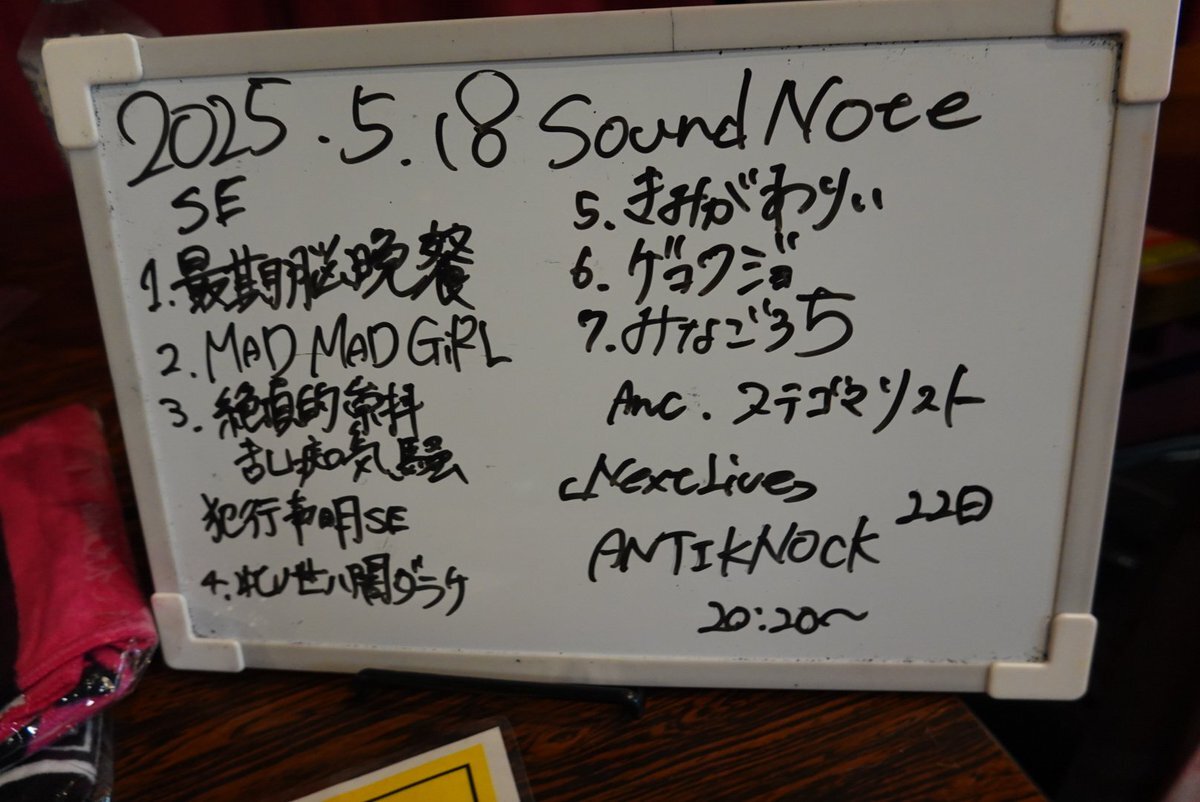 2025.5.18 Sound Note
SE
1. 最期ノ晩餐
2. MAD MAD GiRL
3. 絶頂的
乱痴気騒
犯行声明SE
4. 此ノ世ハ闇ダラケ
5. きみがわりぃ
6. ゲコクジョ
7. みなごろ5
Anc. ステゴマリスト
<Next Live>
ANTIKNOCK 22日
20:20〜